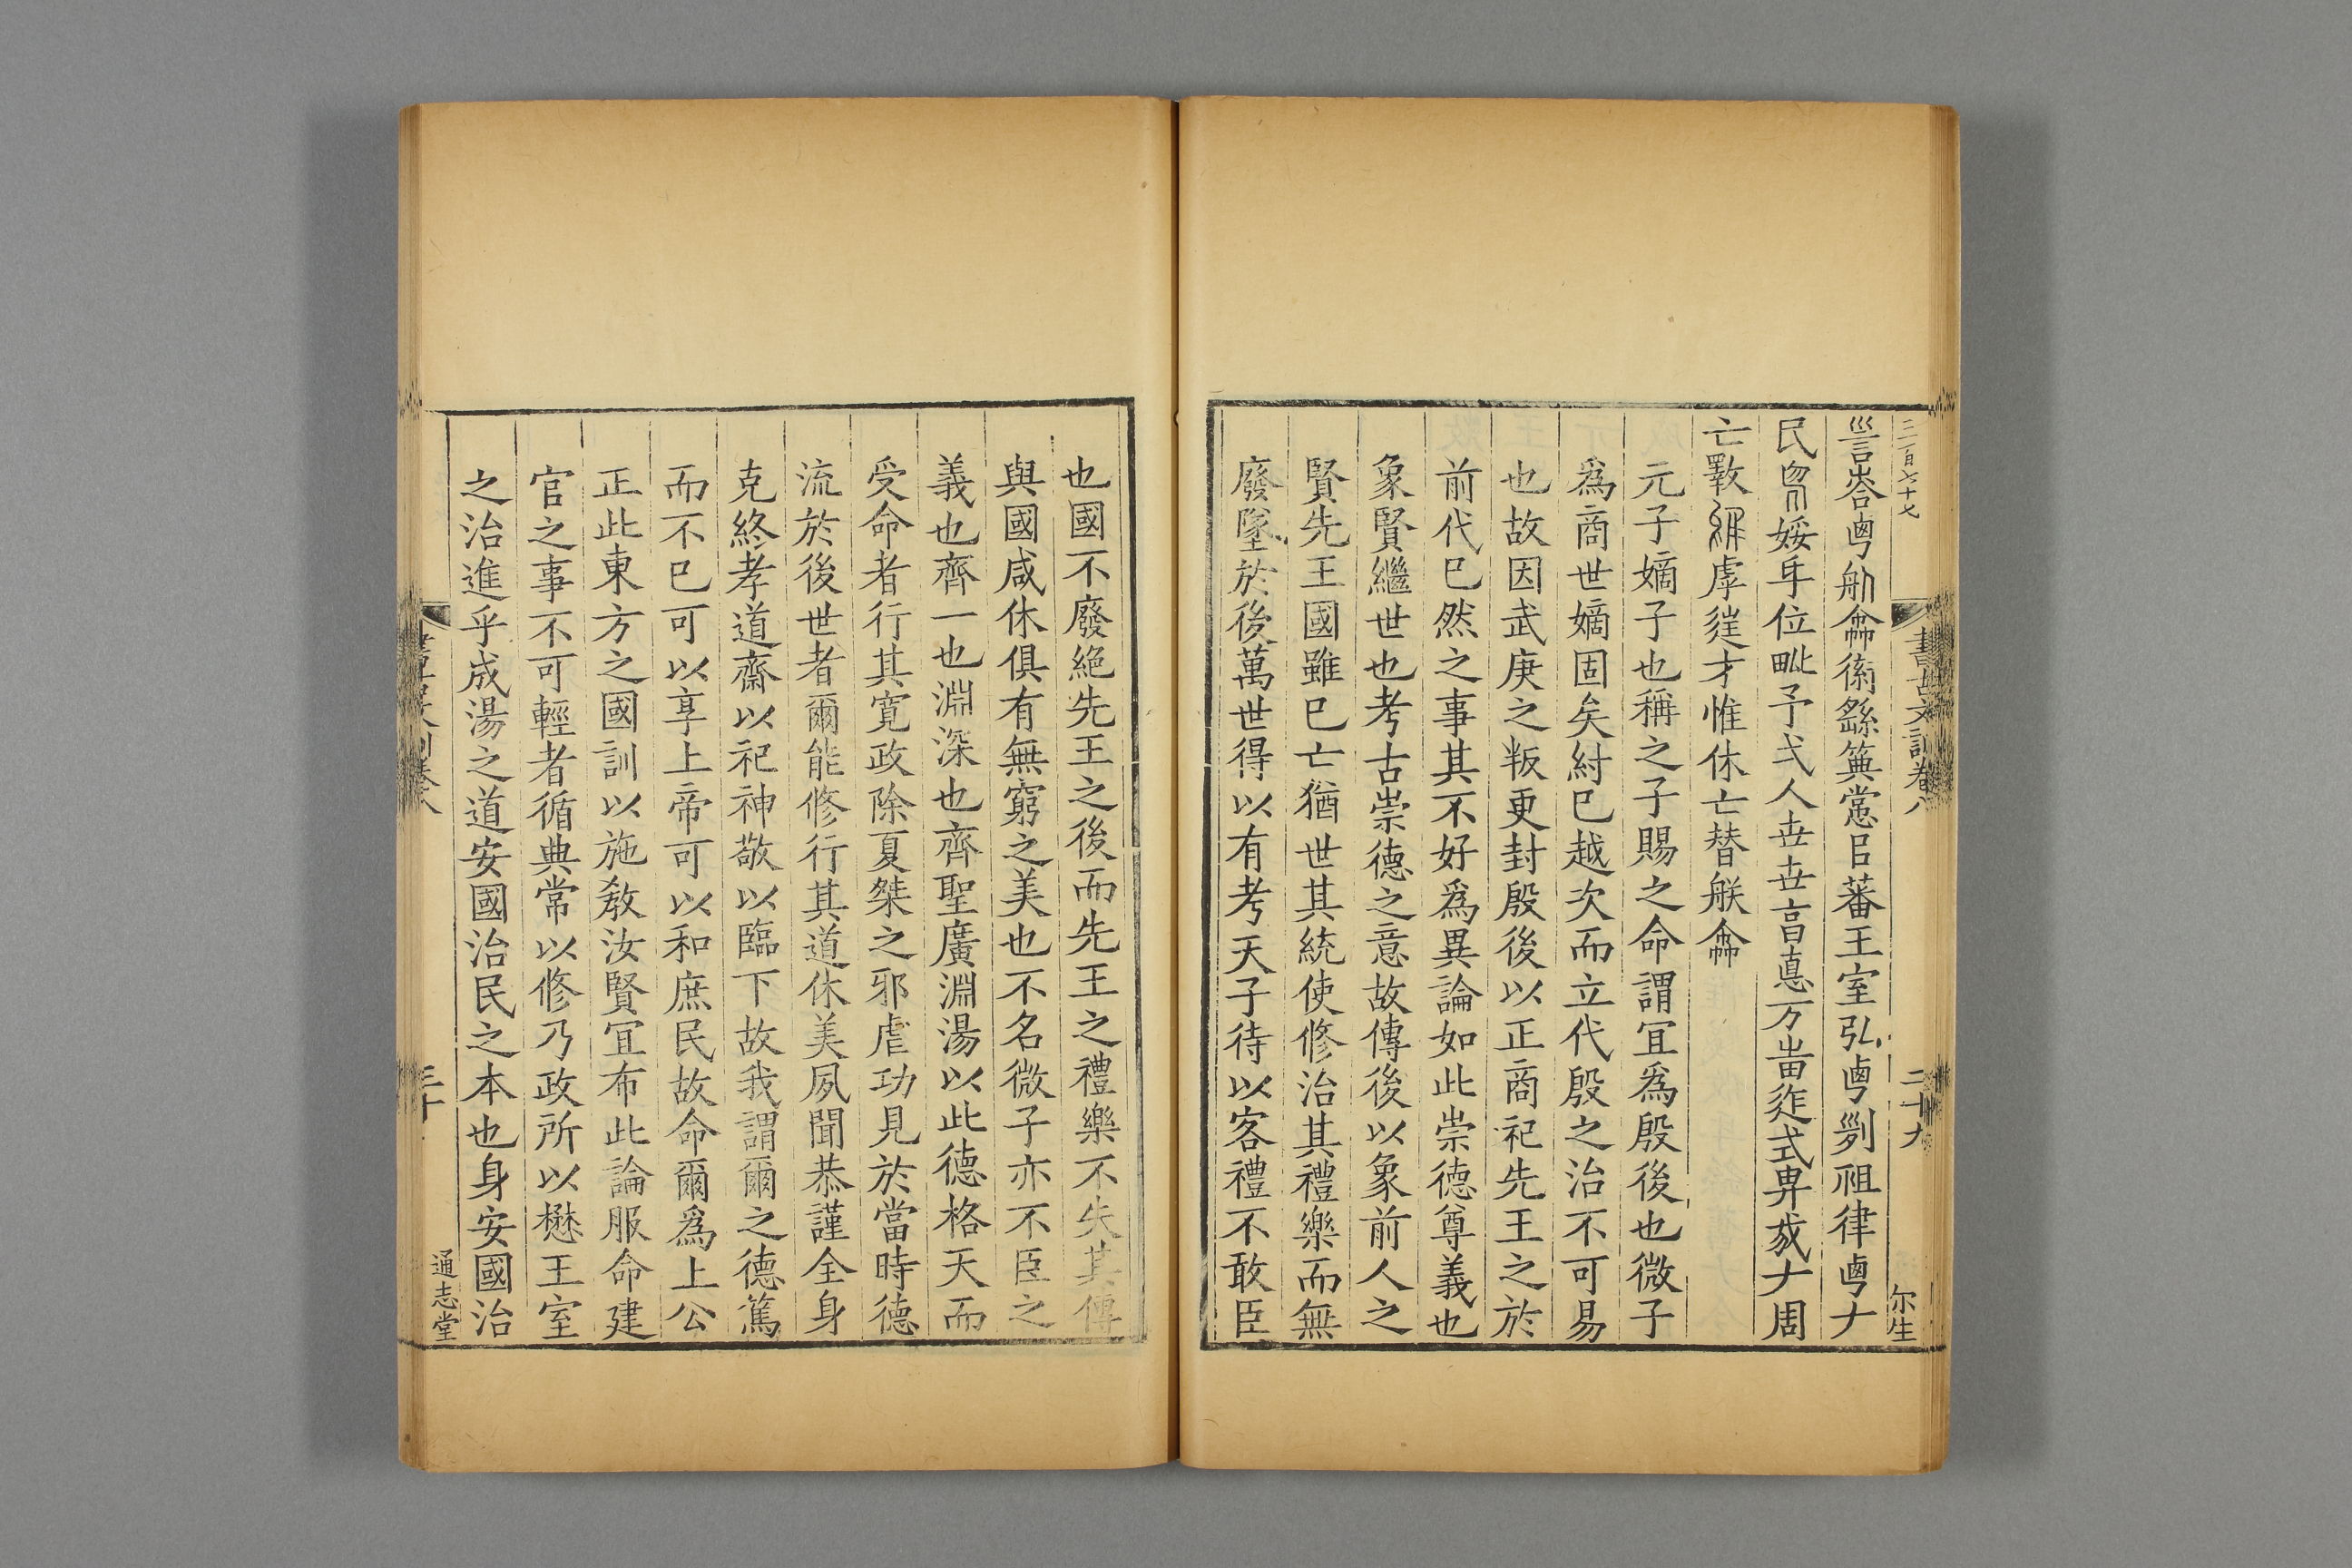 三百七十七
書古文訓卷八
二十九
尔生
𧥣峇𠧟舤㑹衛繇箕㦂㠯蕃王室弘𠧟剓祖律𠧟𠂇
民㒸婑𠂔位毗予弌人卋卋亯悳万𤰫迮式𢍌𢦓𠂇周
亡斁䋣虖𨓹才惟休亡替朕㑹
元子嫡子也稱之子賜之命謂宜爲殷後也微子
爲商世嫡固矣紂已越次而立代殷之治不可易
也故因武庚之叛更封殷後以正商祀先王之於
前代已然之事其不好爲異論如此崇德尊義也
象賢繼世也考古崇德之意故傳後以象前人之
賢先王國雖已亡猶世其統使修治其禮樂而無
廢墜於後萬世得以有考天子待以客禮不敢臣
也國不廢絕先王之後而先王之禮樂不失其傳
與國咸休俱有無窮之美也不名微子亦不臣之
義也齊一也淵深也齊聖廣淵湯以此德格天而
受命者行其寬政除夏桀之邪虐功見於當時德
流於後世者爾能修行其道休美夙聞恭謹全身
克終孝道齋以祀神敬以臨下故我謂爾之德篤
而不已可以享上帝可以和庶民故命爾爲上公
正此東方之國訓以施教汝賢宜布此論服命建
官之事不可輕者循典常以修乃政所以懋王室
之治進乎成湯之道安國治民之本也身安國治
書古文訓卷八
三十
通志堂